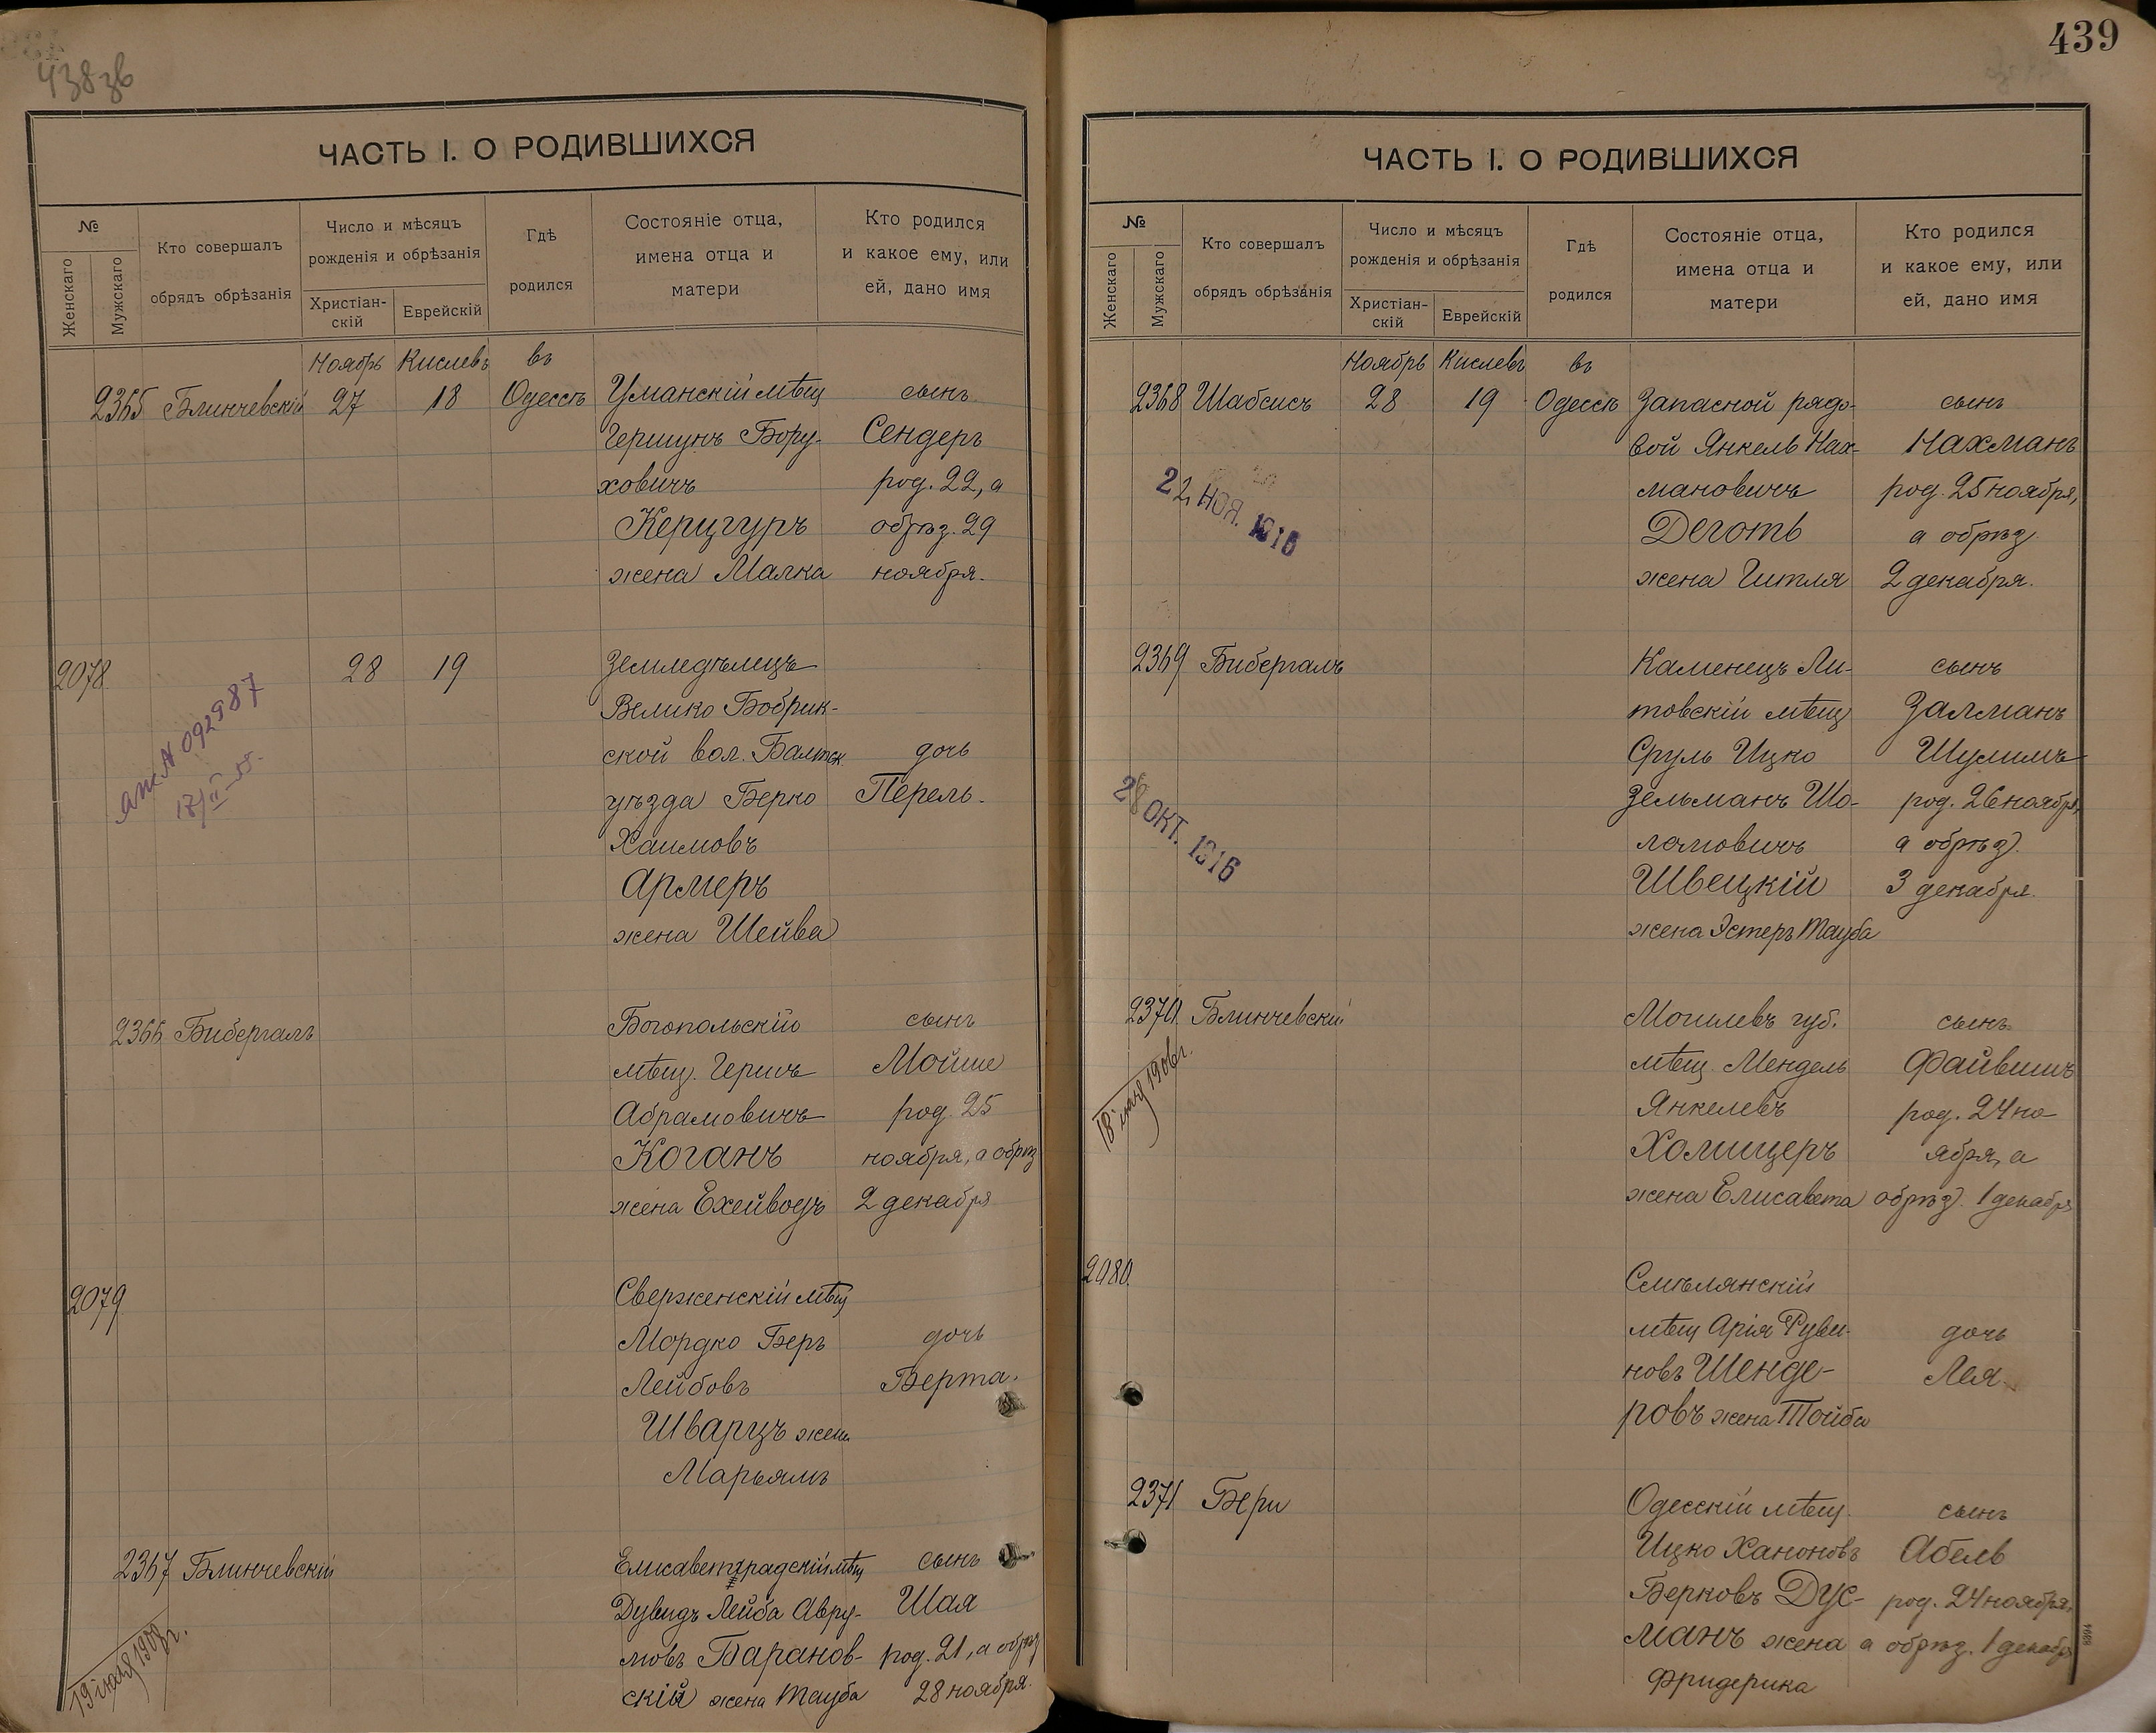 438зв
ЧАСТЬ I. О РОДИВШИХСЯ
№
Женскаго
Мужскаго
Кто совершалъ
обрядъ обрѣзанія
Число и мѣсяцъ
рожденія и обрѣзанія
Христіан-
скій
Еврейскій
Гдѣ
родился
Состояніе отца,
имена отца и
матери
Кто родился
и какое ему, или
ей, дано имя
Ноябрь Кислевъ въ
2365 Блинчевскій 27 18 Одессѣ Уманскій мѣщ сынъ
Гершунъ Бору- Сендеръ
ховичъ род. 22, а
Керцгуръ обрѣз. 29
жена Малка ноября.
2078 28 19 Земледѣлецъ
Велико Бобрик-
ской вол. Балтск дочь
уѣзда Берко Перель.
Хаимовъ
Армеръ
жена Шейва
092987
17/II-55.
2366 Бибергалъ Богопольскій сынъ
мѣщ. Гершъ Мойше
Абрамовичъ род. 25
Коганъ ноября, а обрѣз
жена Ехейводъ 2 декабря
2079 Сверженскій мѣщ
Мордко Беръ дочь
Лейбовъ Берта.
Шварцъ жена
Марьямъ
2367 Блинчевскій Елисаветградскій мѣщ сынъ
Дувидъ Лейба Авру- Шая
мовъ Баранов- род. 21, а обрѣз
скій жена Тауба 28 ноября.
439
ЧАСТЬ I. О РОДИВШИХСЯ
№
Женскаго
Мужскаго
Кто совершалъ
обрядъ обрѣзанія
Число и мѣсяцъ
рожденія и обрѣзанія
Христіан-
скій
Еврейскій
Гдѣ
родился
Состояніе отца,
имена отца и
матери
Кто родился
и какое ему, или
ей, дано имя
Ноябрь Кислевъ въ
2368 Шабсисъ 28 19 Одессѣ Запасной рядо- сынъ
вой Янкель Нах- Нахманъ
мановичъ род. 25 ноября,
Деготь а обрѣз
жена Гитля 2 декабря.
22 НОЯ. 1916
2369 Бибергалъ Каменецъ Ли- сынъ
товскій мѣщ Залманъ
Сруль Ицко Шулимъ
Зельманъ Шо- род. 26 ноября,
ломовичъ а обрѣз.
Швецкій 3 декабря.
жена Эстеръ Тауба
28 ОКТ. 1916
2370 Блинчевскій Могилевъ губ. сынъ
мѣщ. Мендель Файвишъ
Янкелевъ род. 24 но
Холмицеръ ября, а
жена Елисавета обрѣз. 1 декабря
2080 Смѣлянскій
мѣщ Арія Руви- дочь
новъ Шенде- Лея
ровъ жена Тойба
2371 Бери Одесскій мѣщ. сынъ
Ицко Ханоновъ Абель
Берковъ Дус- род. 24 ноября,
манъ жена а обрѣз. 1 декабря
Фридерика